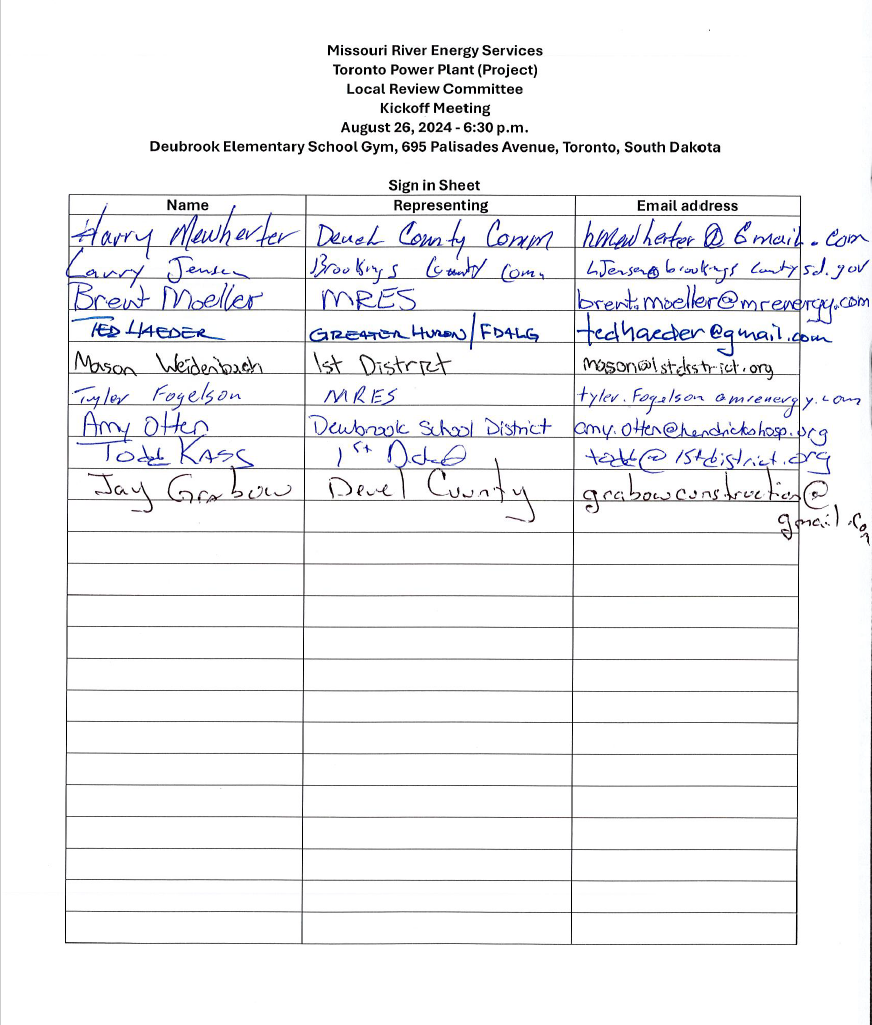 Missouri River Energy Services
Toronto Power Plant (Project)
Local Review Committee
Kickoff Meeting
August 26, 2024 - 6:30 p.m.
Deubrook Elementary School Gym, 695 Palisades Avenue, Toronto, South Dakota
Sign in Sheet
Name Representing Email address
Harry Mewherter Deuel County Comm hmewherter@Gmail.com
Larry Jensen Brookings County Com. LJensen@brookingscountysd.gov
Brent Moeller MRES brent.moeller@mrenergy.com
TED HAEDER GREATER HURON/FDALG tedhaeder@gmail.com
Mason Weidenbach 1st District mason@1stdistrict.org
Tyler Fogelson MRES tyler.Fogelson@mrenergy.com
Amy Otten Deubrook School District amy.otten@hendrickshosp.org
Todd KASS 1st todd@1stdistrict.org
Jay Grabow Deuel County grabowconstruction@
gmail.com